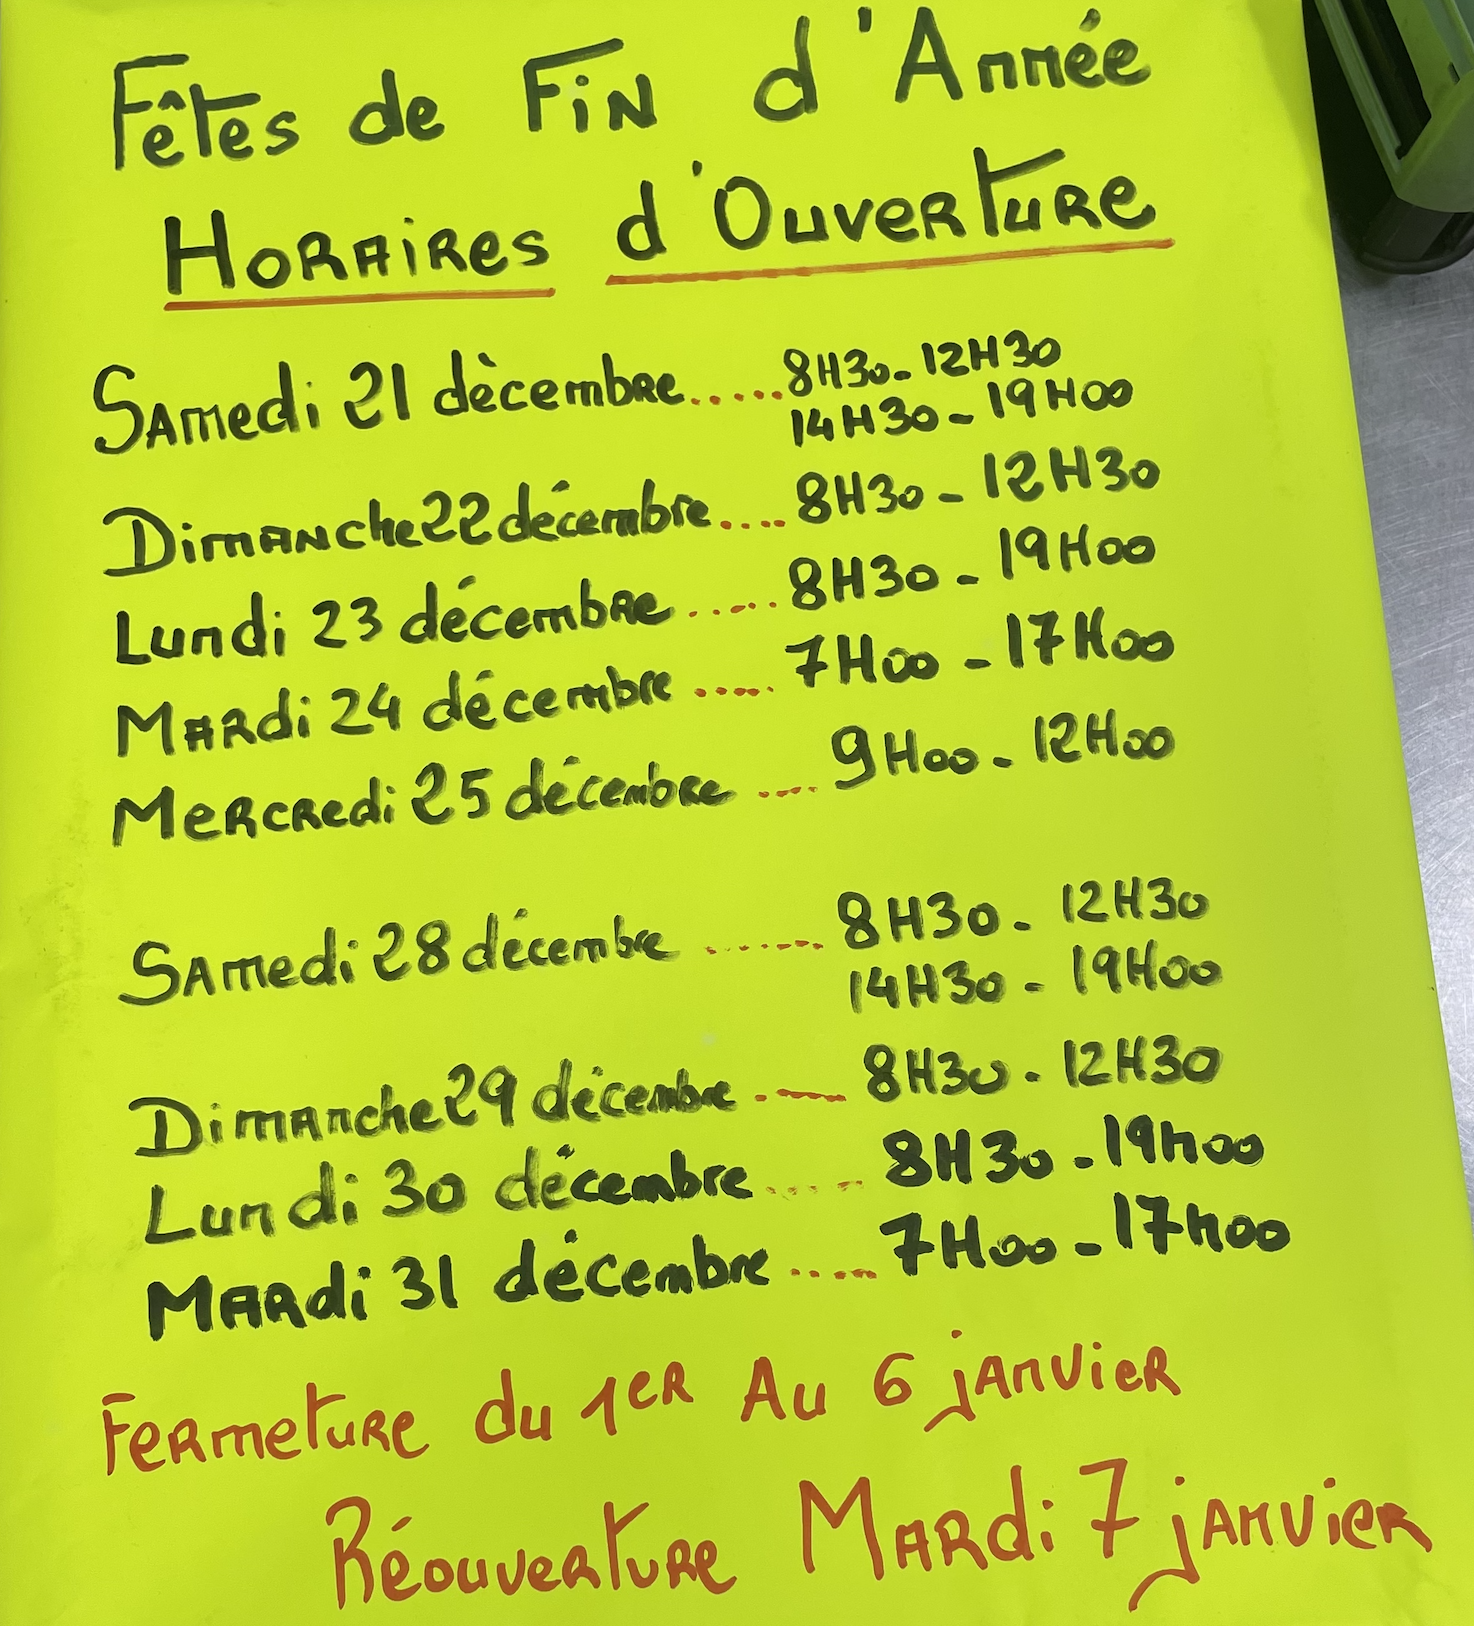 Fêtes de Fin d'Année
Horaires d'Ouverture
Samedi 21 dècembre.....8H30-12H30
14H30-19H00
Dimanche 22 décembre....8H30-12H30
Lundi 23 décembre.....8H30-19H00
Mardi 24 décembre.....7H00-17H00
Mercredi 25 décembre....9H00-12H00
Samedi 28 décembre.......8H30-12H30
14H30-19H00
Dimanche 29 décembre....8H30-12H30
Lundi 30 décembre.....8H30-19H00
Mardi 31 décembre.....7H00-17H00
Fermeture du 1er Au 6 janvier
Réouverture Mardi 7 janvier